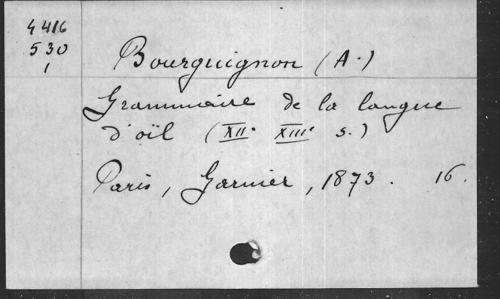 4416
530
1
Bourguignon (A.)
Grammaire de la langue
d'oïl (XIIe XIIIe s.)
Paris, Garnier, 1873. 16.